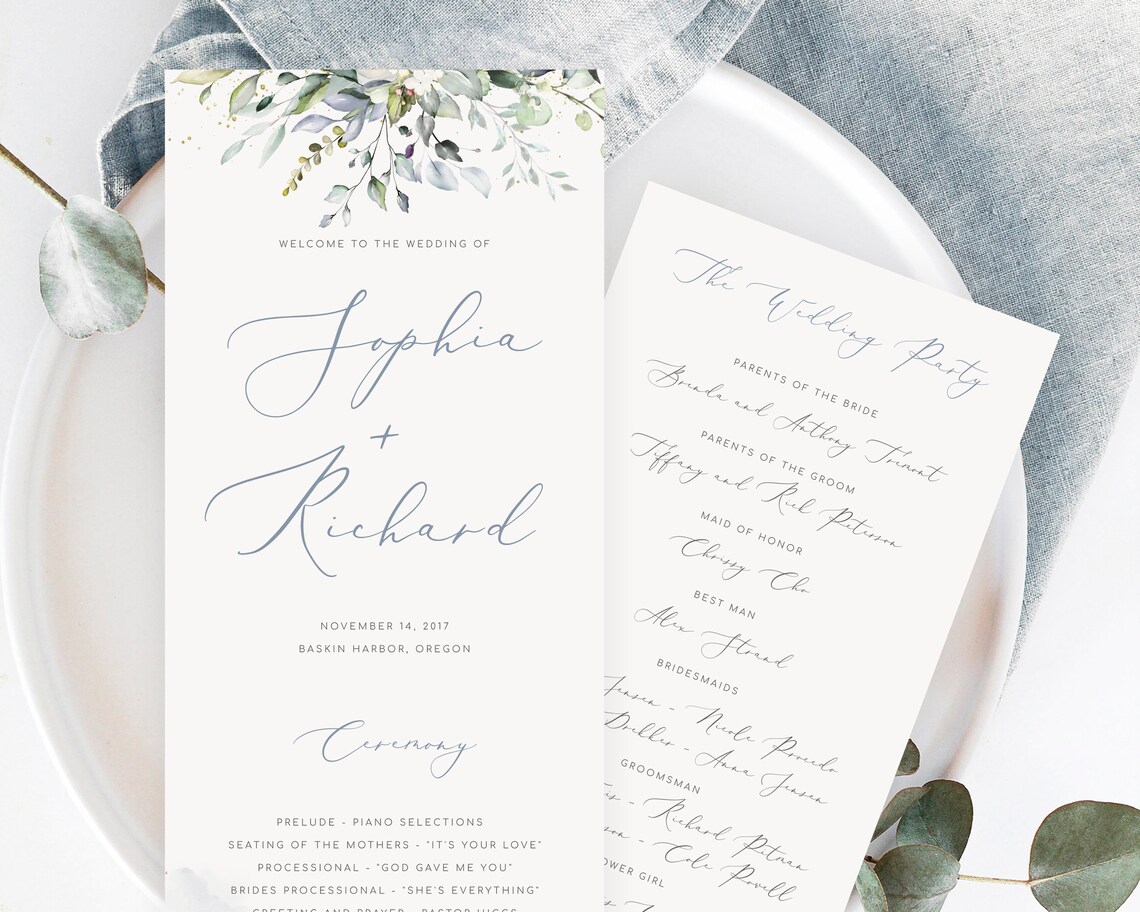 WELCOME TO THE WEDDING OF
Sophia
+
Richard
NOVEMBER 14, 2017
BASKIN HARBOR, OREGON
Ceremony
PRELUDE - PIANO SELECTIONS
SEATING OF THE MOTHERS - "IT'S YOUR LOVE"
PROCESSIONAL - "GOD GAVE ME YOU"
BRIDES PROCESSIONAL - "SHE'S EVERYTHING"
GREETING AND PRAYER - PASTOR HIGGS
The Wedding Party
PARENTS OF THE BRIDE
Brenda and Anthony Tremont
PARENTS OF THE GROOM
Tiffany and Rick Peterson
MAID OF HONOR
Chrissy Cho
BEST MAN
Alex Strand
BRIDESMAIDS
Jensen - Nicole Provedo
Drekker - Anna Jensen
GROOMSMAN
- Richard Pitman
- Cole Powell
GIRL